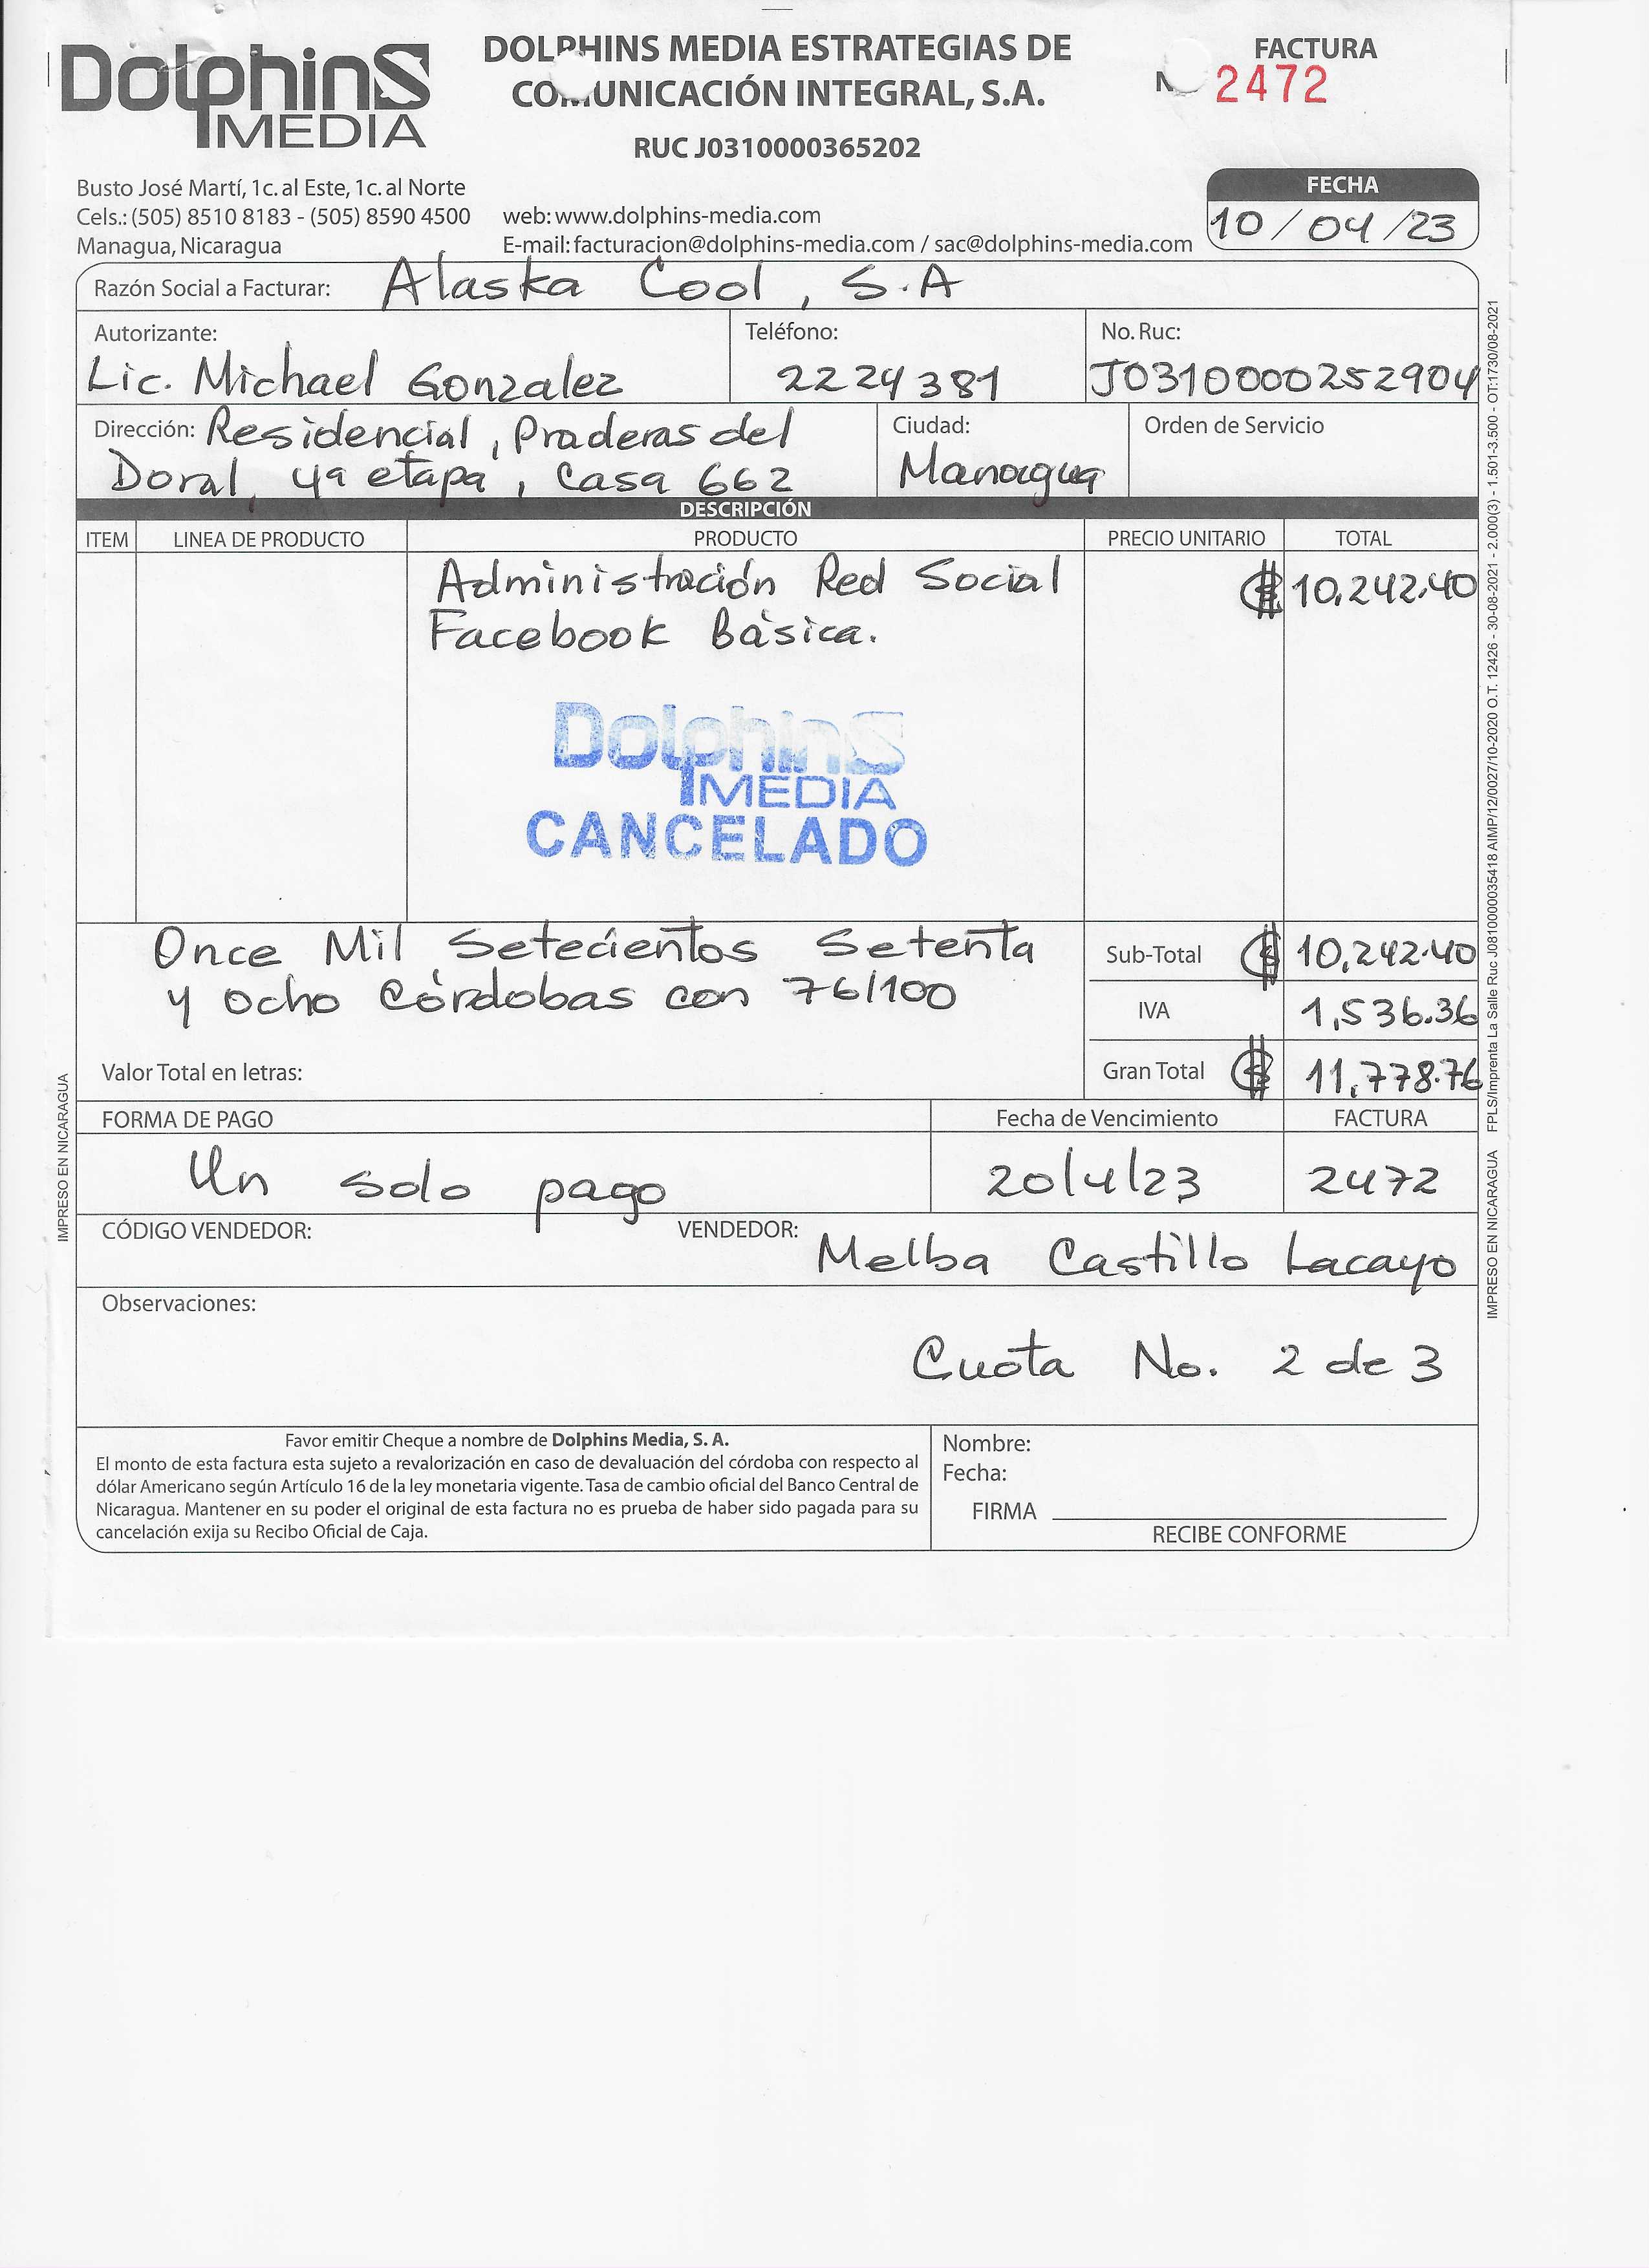 DolphinS
MEDIA
DOLPHINS MEDIA ESTRATEGIAS DE
COMUNICACIÓN INTEGRAL, S.A.
RUC J0310000365202
FACTURA
N 2472
Busto José Martí, 1c. al Este, 1c. al Norte
Cels.: (505) 8510 8183 - (505) 8590 4500
Managua, Nicaragua
web: www.dolphins-media.com
E-mail: facturacion@dolphins-media.com / sac@dolphins-media.com
FECHA
10 / 04 / 23
Razón Social a Facturar: Alaska Cool, S.A
Autorizante: Teléfono: No. Ruc:
Lic. Michael Gonzalez 2224381 J0310000252904
Dirección: Residencial, Praderas del
Doral, 4ª etapa, Casa 662
Ciudad:
Managua
Orden de Servicio
DESCRIPCIÓN
ITEM LINEA DE PRODUCTO PRODUCTO PRECIO UNITARIO TOTAL
Administración Red Social C$ 10,242.40
Facebook Básica.
DolphinS
MEDIA
CANCELADO
Once Mil Setecientos Setenta
y ocho Córdobas con 76/100
Valor Total en letras:
Sub-Total C$ 10,242.40
IVA 1,536.36
Gran Total C$ 11,778.76
FORMA DE PAGO Fecha de Vencimiento FACTURA
Un solo pago 20/4/23 2472
CÓDIGO VENDEDOR: VENDEDOR: Melba Castillo Lacayo
Observaciones:
Cuota No. 2 de 3
Favor emitir Cheque a nombre de Dolphins Media, S. A.
El monto de esta factura esta sujeto a revalorización en caso de devaluación del córdoba con respecto al
dólar Americano según Artículo 16 de la ley monetaria vigente. Tasa de cambio oficial del Banco Central de
Nicaragua. Mantener en su poder el original de esta factura no es prueba de haber sido pagada para su
cancelación exija su Recibo Oficial de Caja.
Nombre:
Fecha:
FIRMA
RECIBE CONFORME
IMPRESO EN NICARAGUA
IMPRESO EN NICARAGUA FPLS/Imprenta La Salle Ruc J0810000035418 AIMP/12/0027/10-2020 O.T. 12426 - 30-08-2021 - 2.000(3) - 1.501-3.500 - OT:1730/08-2021